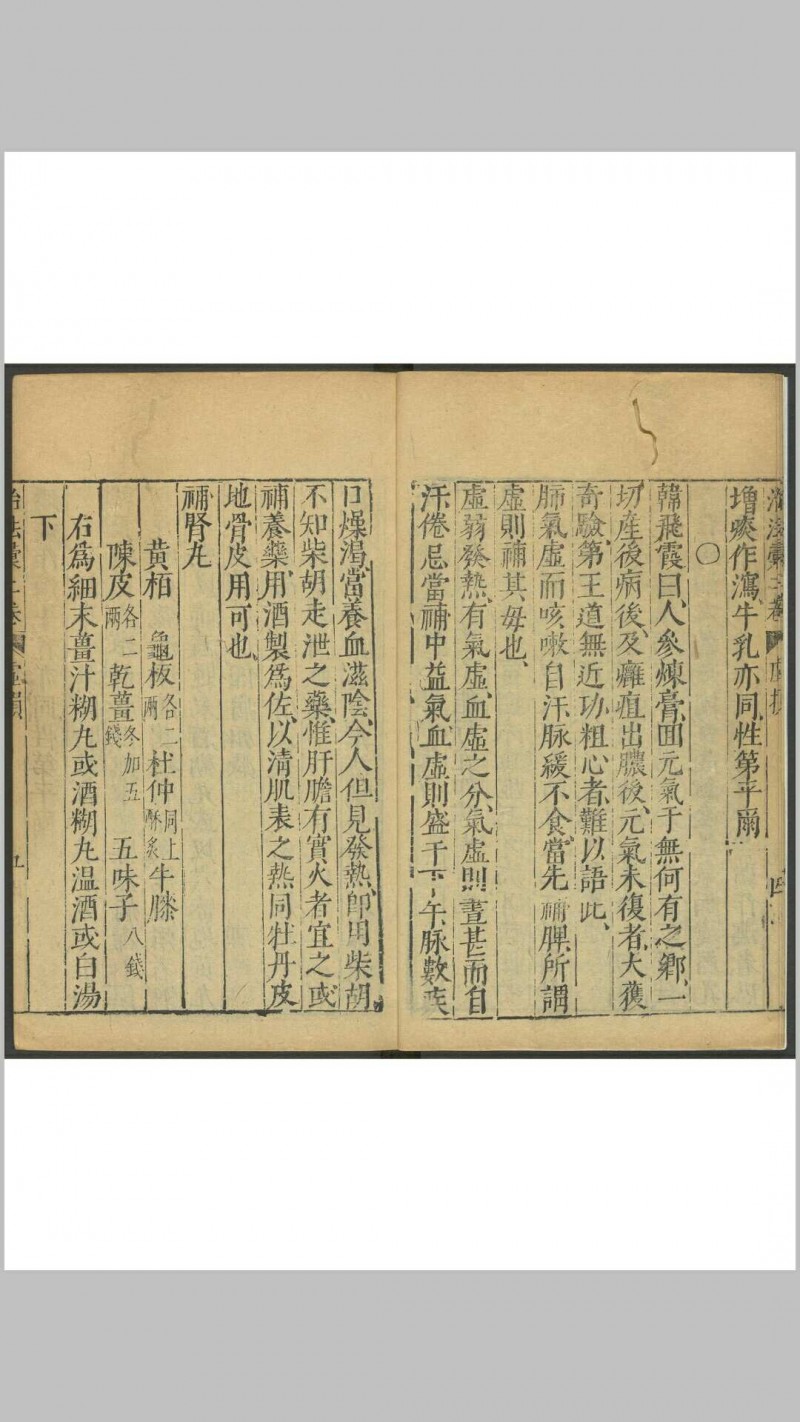 增痰作瀉牛乳亦同性第平爾
〇
韓飛霞曰人參煉膏囬元氣于無何有之鄉一
切產後病後及癰疽出膿後元氣未復者大獲
奇驗第王道無近功粗心者難以語此
肺氣虛而咳嗽自汗脉緩不食當先補脾所謂
虛則補其毋也
虛弱發熱有氣虛血虛之分氣虛則晝甚而自
汗倦忌當補中益氣血虛則盛于下午脉數疾
口燥渴當養血滋陰今人但見發熱卽用柴胡
不知柴胡走泄之藥惟肝膽有實火者宜之或
補養藥用酒製爲佐以清肌表之熱同牡丹皮
地骨皮用可也
補腎丸
黄栢 龜板各二兩 杜仲同上酥炙 牛膝
陳皮各二兩 乾薑冬加五錢 五味子八錢
右爲細末薑汁糊丸或酒糊丸温酒或白湯
下